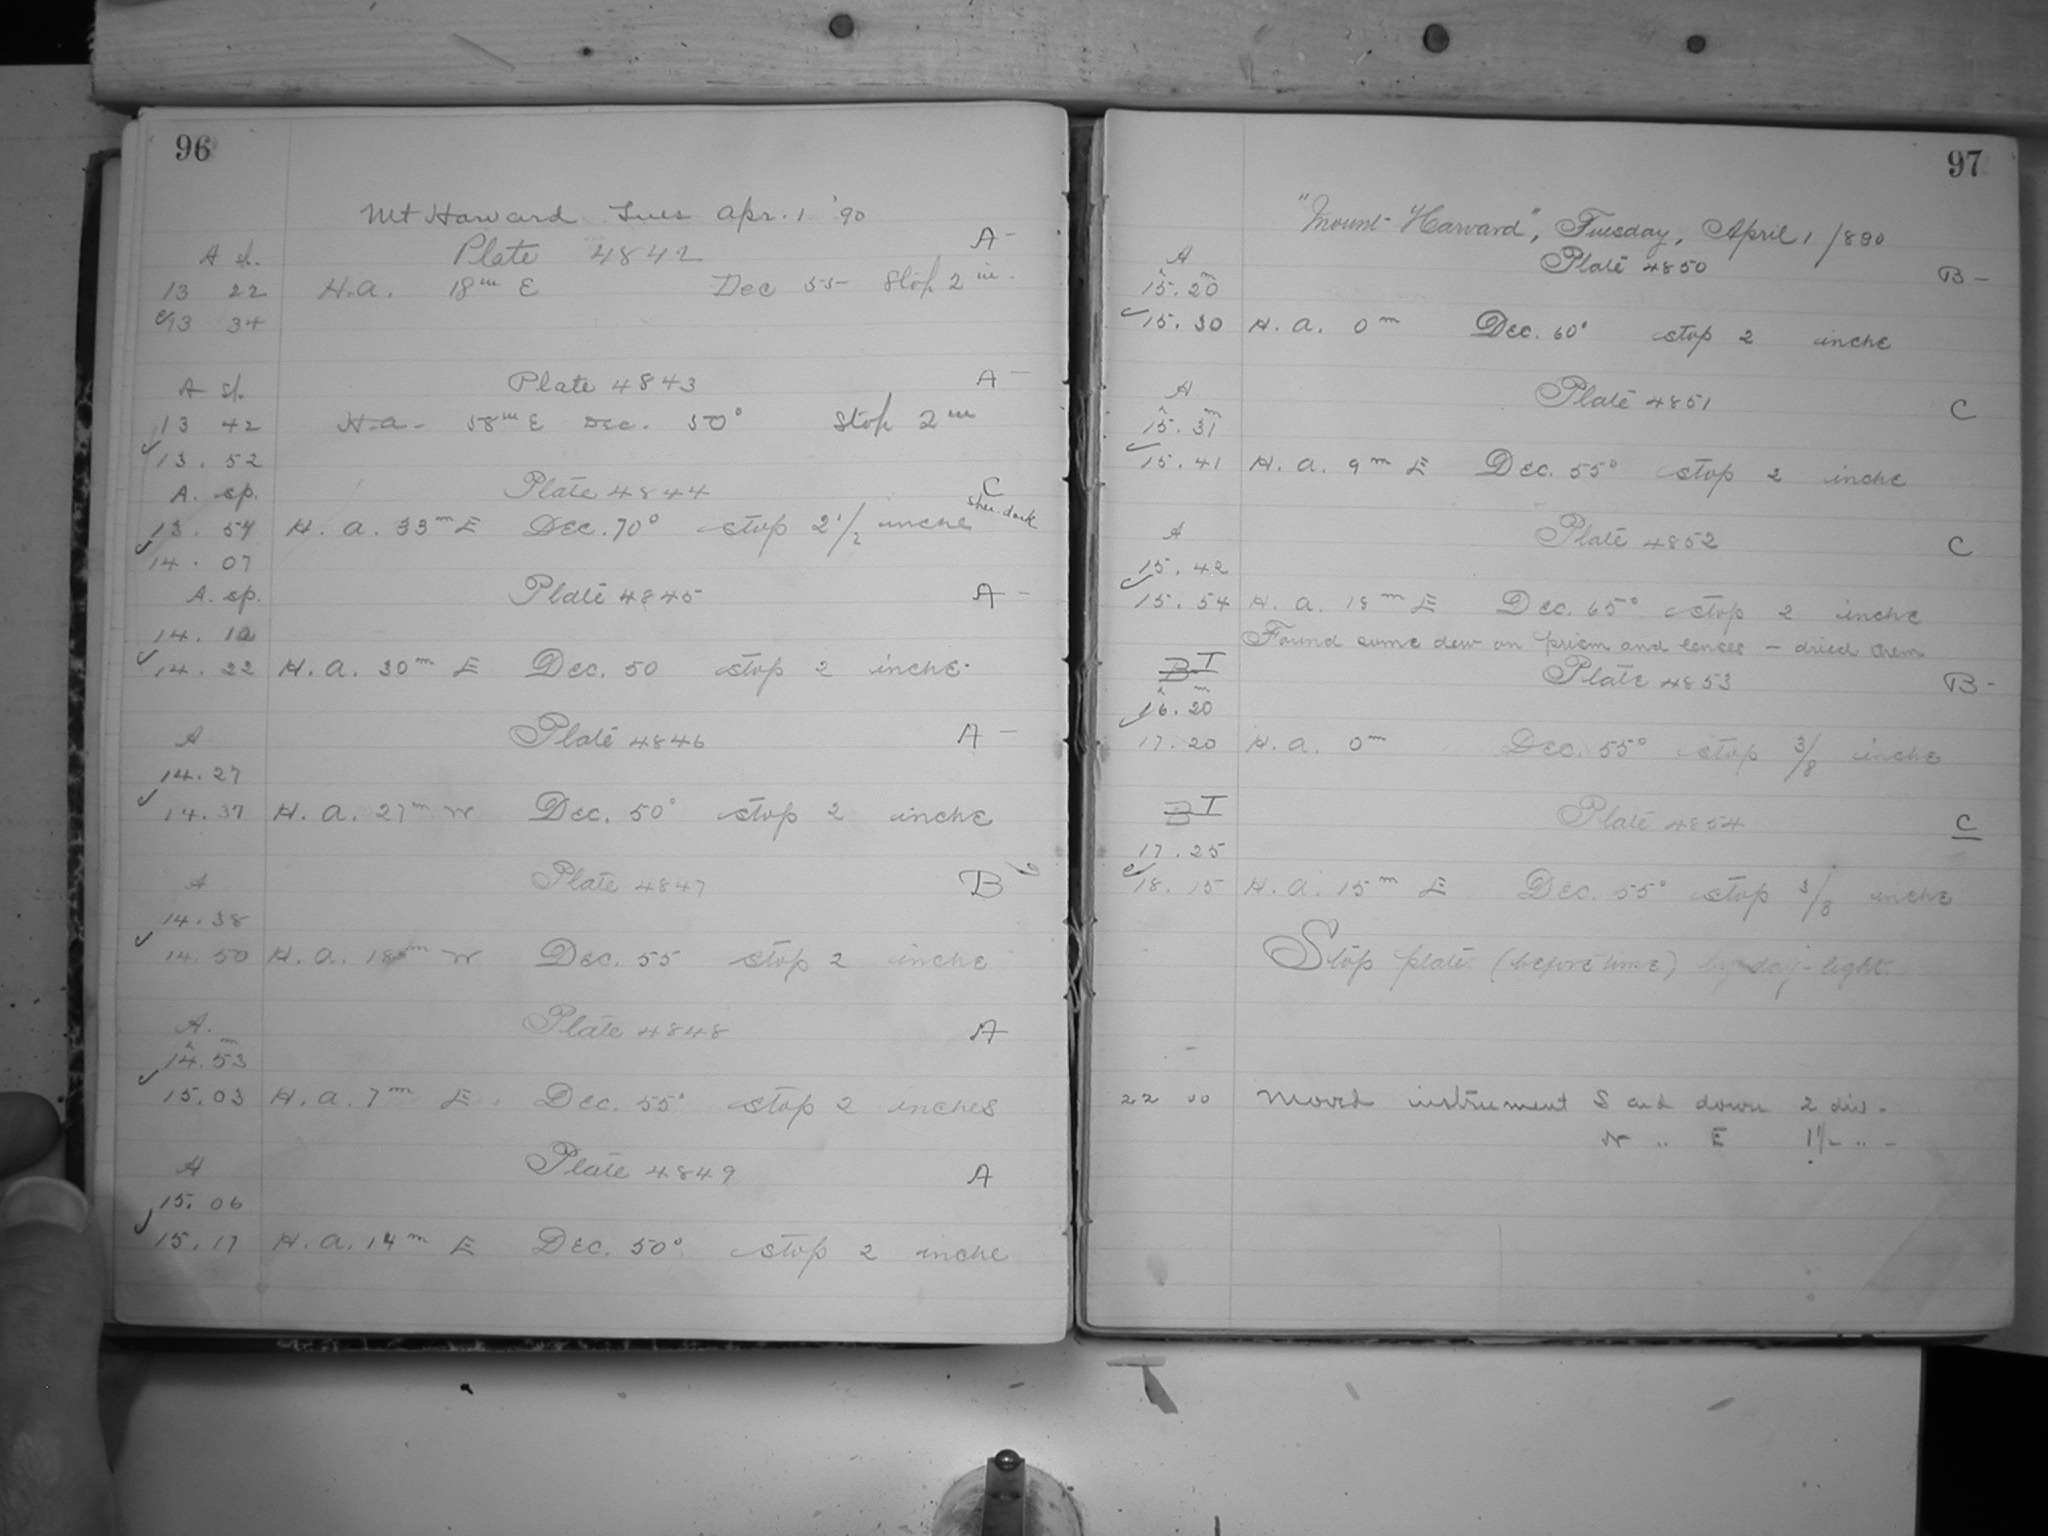 96
Mt Harvard Tues Apr. 1 '90
Plate 4842 A-
A sp.
13 22 H.a. 18m E Dec 55 Stop 2 in.
13 34
Plate 4843 A-
A sp.
13 42 H.a. 58m E Dec. 50° Stop 2 in
13. 52
A. sp. Plate 4844 C
13. 57 H. a. 33m E Dec. 70° stop 2 1/2 inche
14. 07
A. sp. Plate 4845 A-
14. 12
14. 22 H. a. 30m E Dec. 50 stop 2 inche.
A Plate 4846 A-
14. 27
14. 37 H. a. 27m W Dec. 50° stop 2 inche
A Plate 4847 B
14. 38
14. 50 H. a. 18m W Dec. 55 stop 2 inche
A. Plate 4848 A
h m
14. 53
15. 03 H. a. 7m E. Dec. 55° stop 2 inches
A Plate 4849 A
15. 06
15. 17 H. a. 14m E Dec. 50° stop 2 inche
97
"Mount Harvard", Tuesday, April 1 1890
A Plate 4850 B-
h m
15. 20
15. 30 H. a. 0m Dec. 60° stop 2 inche
A Plate 4851 C
h m
15. 31
15. 41 H. a. 9m E Dec. 55° stop 2 inche
A Plate 4852 C
15. 42
15. 54 H. a. 18m E Dec. 65° stop 2 inche
Found some dew on prism and lenses - dried them
B I Plate 4853 B-
h m
16. 20
17. 20 H. a. 0m Dec. 55° stop 3/8 inche
B I Plate 4854 C
17. 25
18. 15 H. a. 15m E Dec. 55° stop 3/8 inche
Stop plate (before time) by day-light.
22 00 Moved instrument S and down 2 div.
N " E 1 1/2 " -